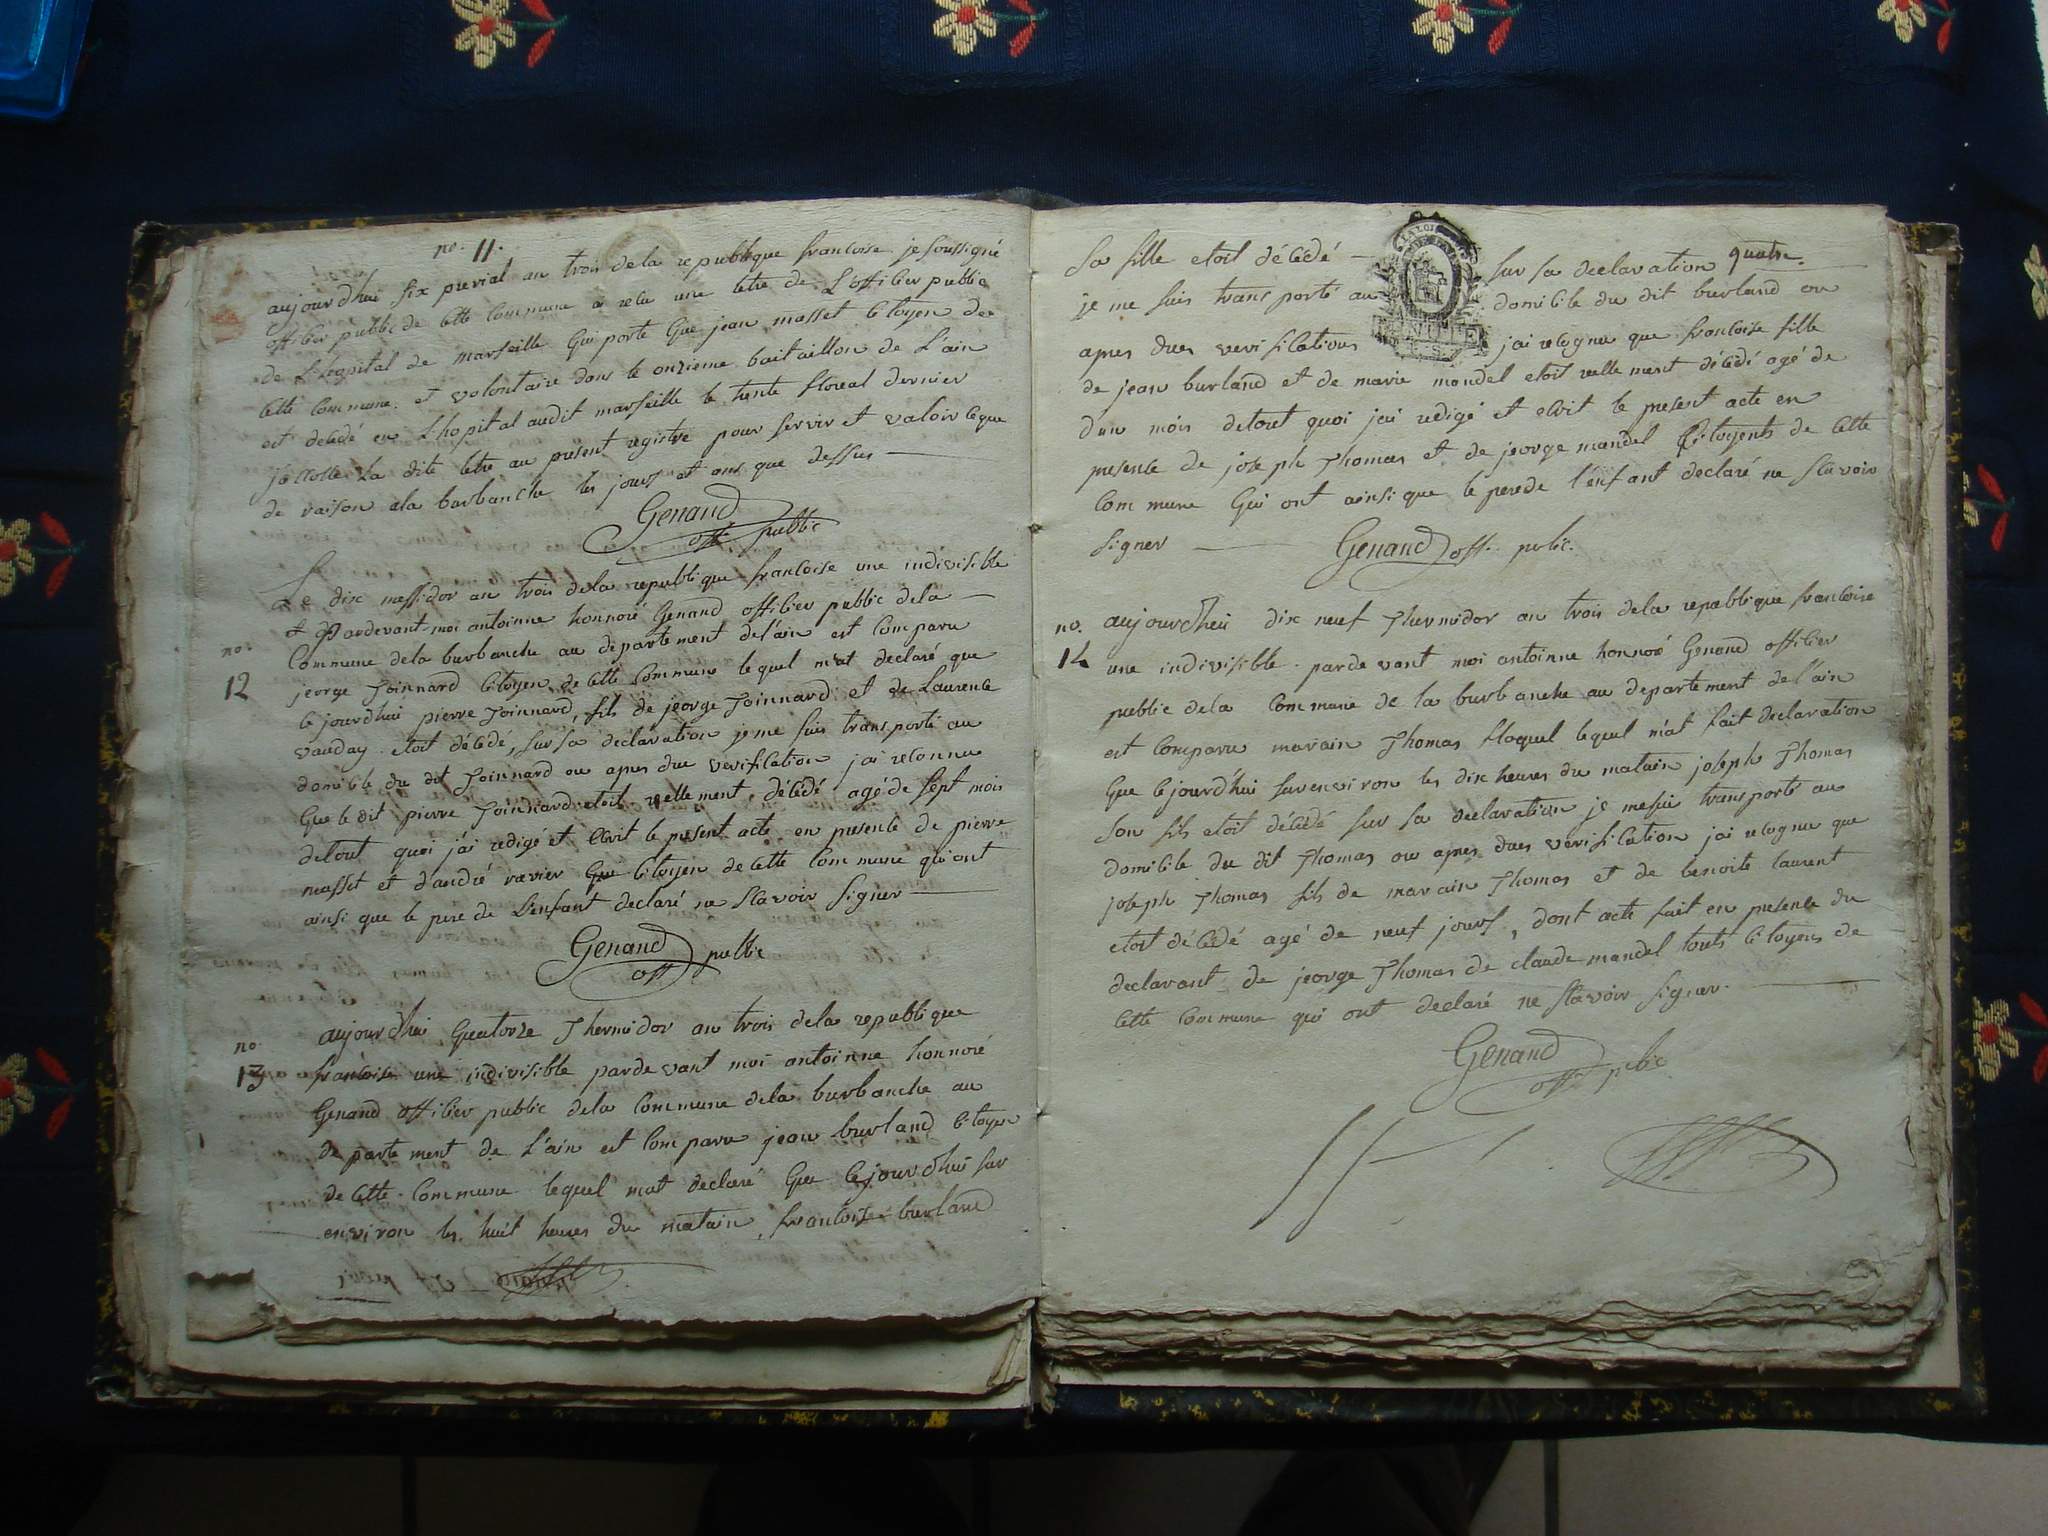 no. 11.
aujourd'hui six prerial an trois de la republique francoise je soussigné
officier public de cette commune a recu une letre de L'officier public
de L'hopital de marseille qui porte que jean masset citoyen de
cette commune et volontaire dans le onzieme battaillon de L'ain
est décédé en L'hopital audit marseille le trente floreal dernier
la dite letre au present registre pour servir et valoir ce que
de raison a la burbanche les jours et ans que dessus
Genand
off. public
no.
12
Le dix messidor an trois de la republique francoise une indivisible
et pardevant moi antoinne honnoré Genand officier public de la
commune de la burbanche au departement de l'ain est comparu
jeorge Joinnard citoyen de cette commune lequel m'at declaré que
cejourdhui pierre Joinnard, fils de jeorge Joinnard et de Laurence
vauday etoit décédé, sur sa declaration je me suis transporté au
domicile du dit Joinnard ou apres due verification j'ai reconnu
que le dit pierre Joinnard etoit reellement décédé agé de sept mois
detout quoi j'ai redigé et ecrit le present acte en presence de pierre
masset et d'andré ravier citoyen de cette commune qui ont
ainsi que le pere de L'enfant declaré ne scavoir signer
Genand
off. public
no.
13
aujourdhui quatorze Thermidor an trois de la republique
francoise une indivisible pardevant moi antoinne honnoré
Genand officier public de la commune de la burbanche au
departement de L'ain est comparu jean burland citoyen
de cette commune lequel mat declaré que cejourdhui sur
environ les huit heures du matain, francoise burland
quatre.
sa fille etoit décédé sur sa declaration
je me suis transporté au domicile du dit burland ou
apres dues verifications j'ai recognu que francoise fille
de jean burland et de marie mandel etoit reellement décédé agé de
d'un mois detout quoi j'ai redigé et ecrit le present acte en
presence de joseph Thomas et de jeorge mandel citoyents de cette
commune qui ont ainsi que le pere de l'enfant declaré ne scavoir
signer
Genand off. public.
no.
14
aujourdhui dix neuf Thermidor an trois de la republique francoise
une indivisible pardevant moi antoinne honnoré Genand officier
public de la commune de la burbanche au departement de l'ain
est comparu marain Thomas lequel m'at fait declaration
que cejourdhui sur environ les dix heures du matain joseph Thomas
son fils etoit décédé sur sa declaration je me suis transporté au
domicile du dit Thomas ou apres dues verification j'ai recognu que
joseph Thomas fils de marain Thomas et de benoite laurent
etoit décédé agé de neuf jours, dont acte fait en presence du
declarant de jeorge Thomas de claude mandel touts citoyens de
cette commune qui ont declaré ne scavoir signer.
Genand
off. public